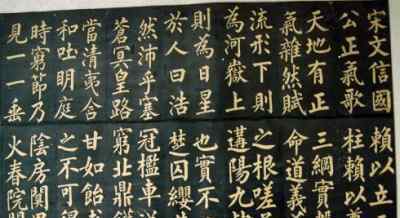 宋文信國
公正氣歌
天地有正
氣雜然賦
流形下則
為河嶽上
則為日星
於人曰浩
然沛乎塞
蒼冥皇路
當清夷含
和吐明庭
時窮節乃
見一一垂
賴以立
柱賴以
三綱實
命道義
之根嗟
遘陽九
也實不
楚囚纓
冠檻車
窮北鼎
甘如飴
之不可
陰房闃
火春院